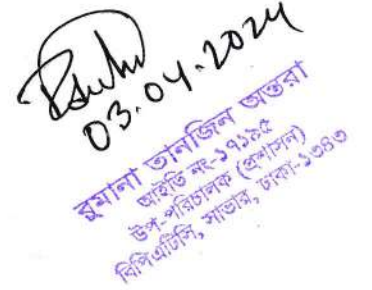 03.04.2024
রুমানা তানজিন অন্তরা
আইডি নং-১৭১৯৫
উপ-পরিচালক (প্রশাসন)
বিপিএটিসি, সাভার, ঢাকা-১৩৪৩